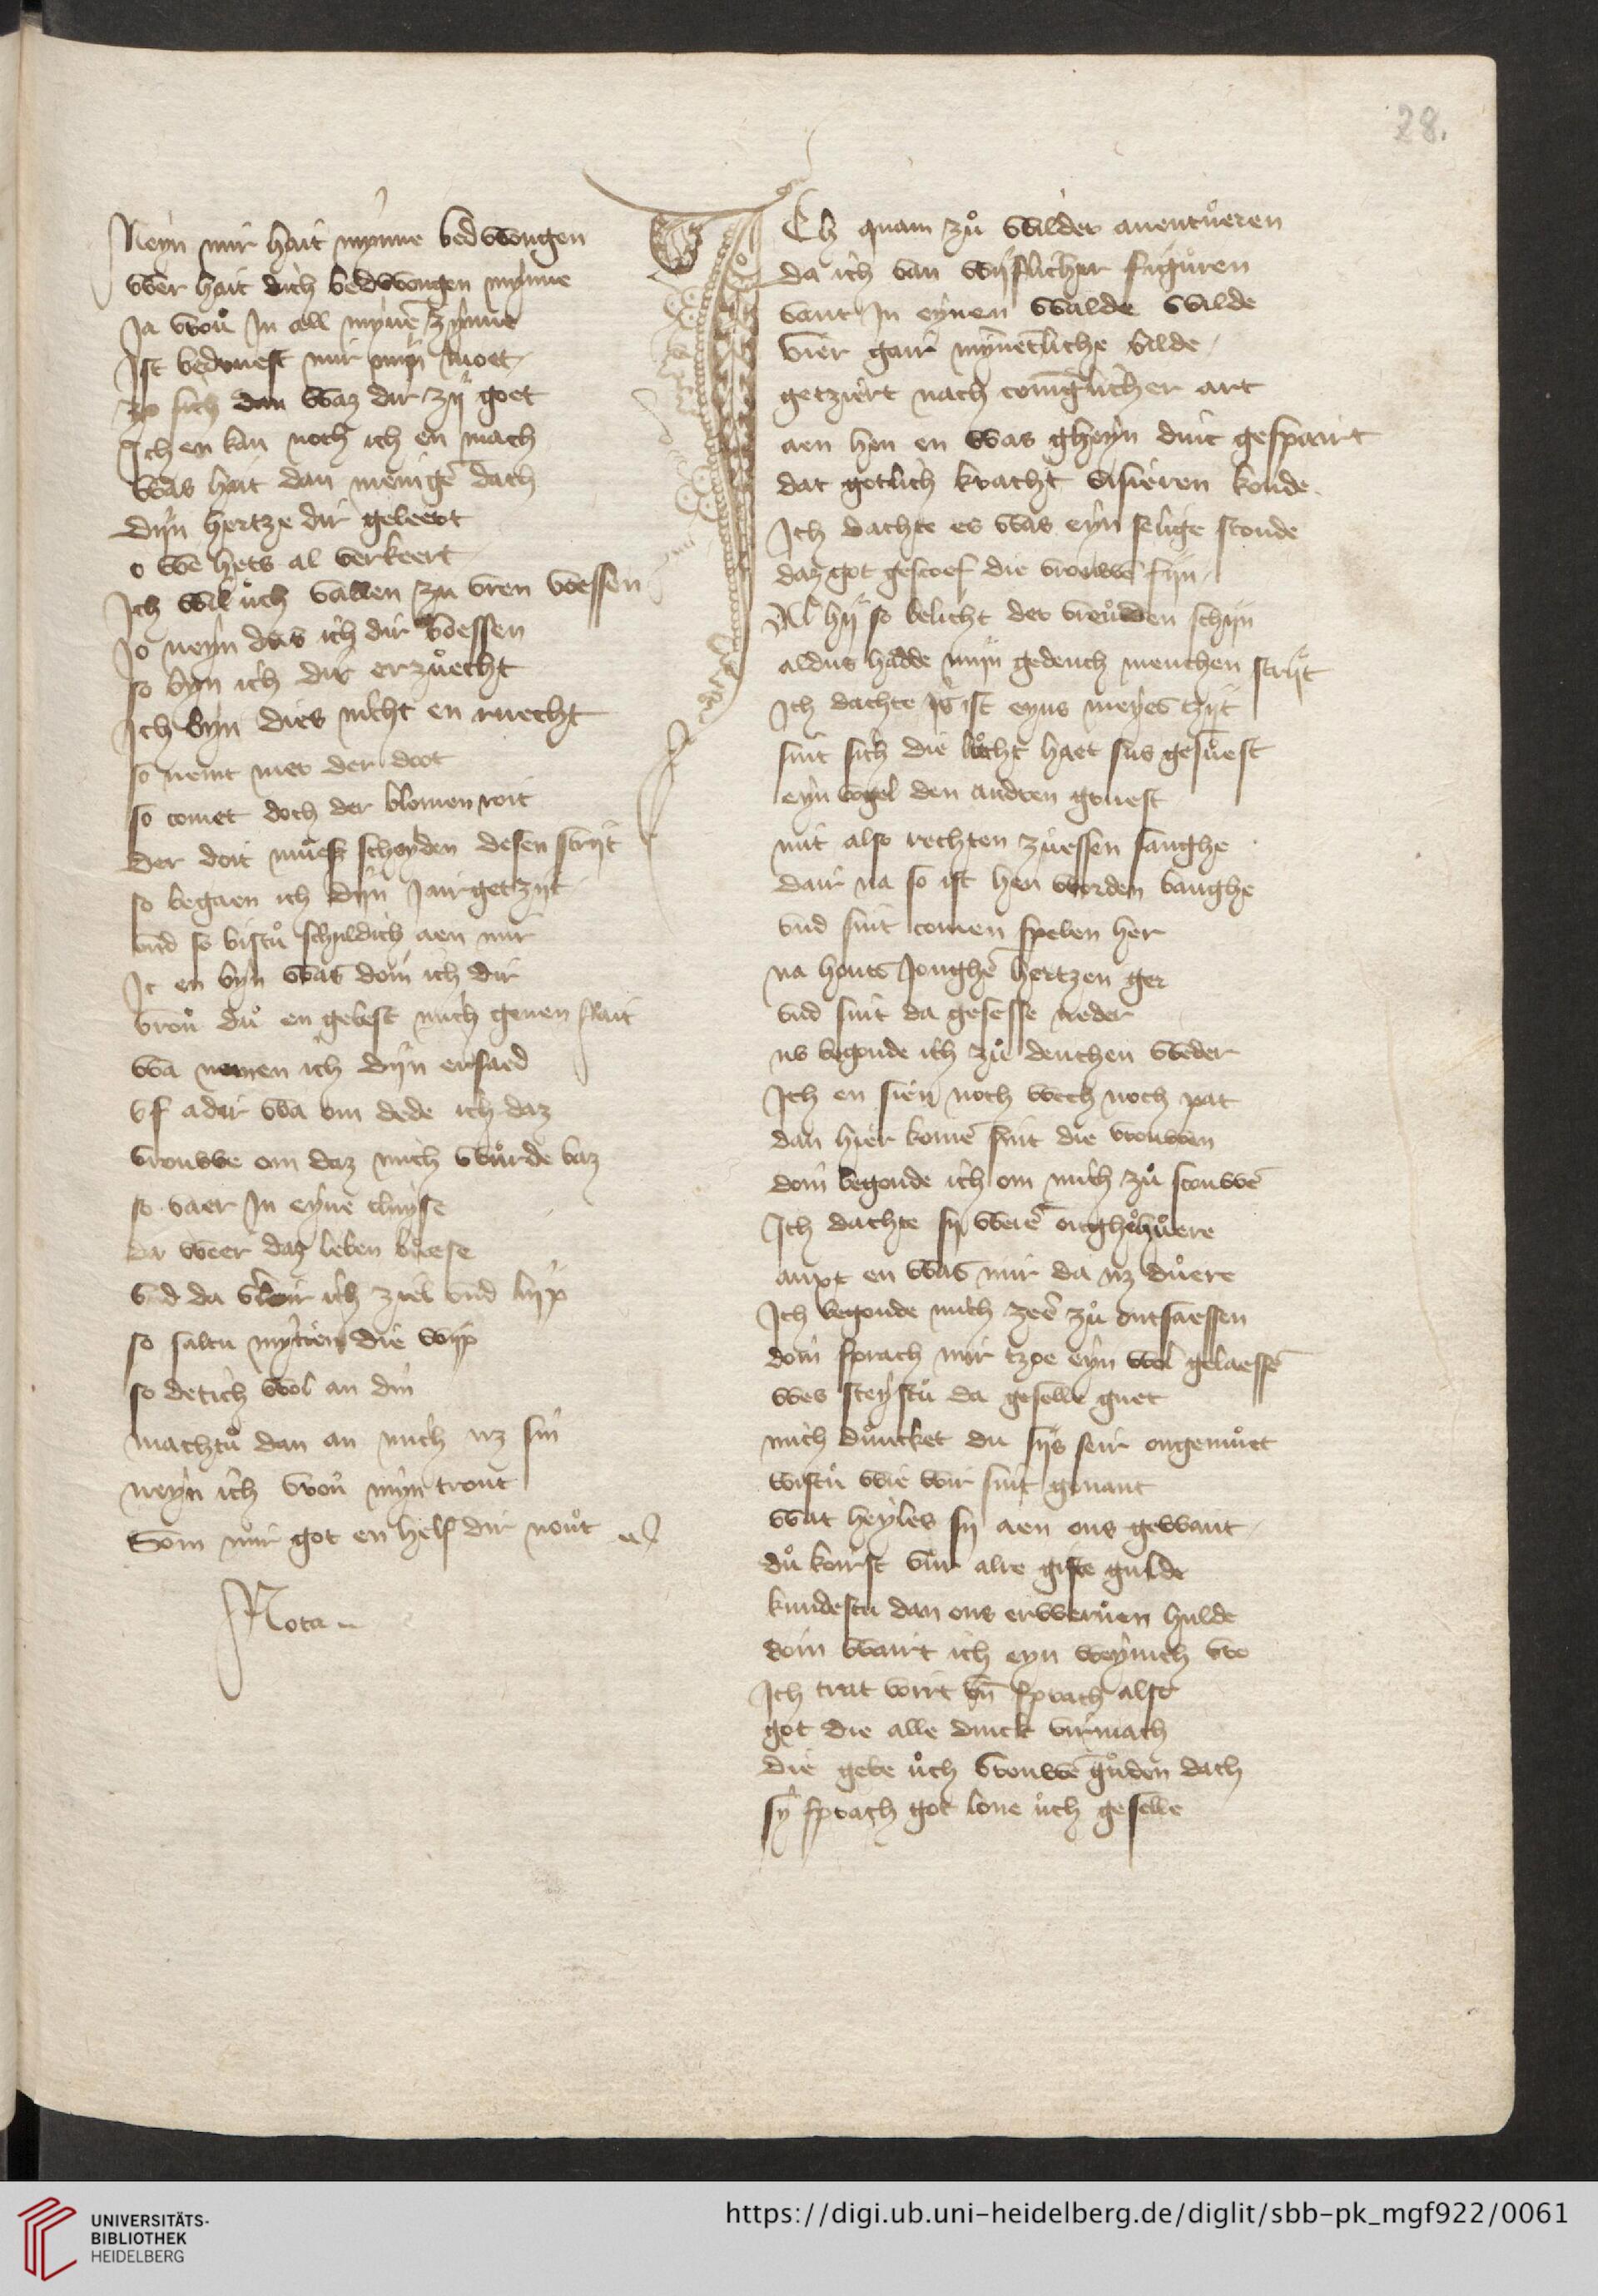 28.
Neyn mir hait mynne bedwongen
Wer hait dich bedwongen mynne
Ja vroů In all mynē zynne
Ist bedruest mir myn moet
zo sich dan waz dir zy goet
Ich en kan noch ich en mach
Was hait dan menigē dach
Dyn hertze dir geleert
o we hets al verkeert
Ich wil ůch vallen zu vren voessen
Jo neyn das ich dir boessen
so byn ich dir erzůecht
Ich byn dies nicht en ruecht
so nemt mer der doot
so comet doch der blomen roit
Der doit můess scheyden desen stryt
so begaen ich dyn Jairgetzyt
vnd so bistů schuldich aen mir
Ic en byn was dom ich dir
vroů dů en gebest mich genen rait
wa nemen ich dyn ersaed
Of adir wa om dede ich daz
vrouwe om daz mich wůrde baz
so vaer In eyne cluyse
da weer daz leben bůese
vnd da vloir ich ziel vnd lyp
so saltu myden die wyp
so detich wol an din
machtů dan an mich uz sin
neyn ich vroů myn trout
Som mir got en helf dir noůt
Nota
Ich quam zů wilder auentůeren
da ich van wyflicher figůren
vant In eynen walde wilde
vier gair mynnetliche bilde
getziert nach coninglicher art
aen hen en was gheyn dinc gespairt
dat gotlich kracht visieren konde
Ich dachte es was eyn selige stonde
daz got gescoef die vrouwē fyn
Al hy so belicht der vreůden schyn
aldus hadde myn gedench menchen stryt
Ich dachte is ist eyns meyes tzyt
sint sich die lůcht haet sus gesůest
eyn vogel den andren gruest
mit also rechten zůessen sanghe
dair na so ist hen worden banghe
vnd sint comen spelen her
na honts Jonghē hertzen ger
vnd sint da gesesse neder
us begonde ich zů denchen weder
Ich en sien noch wech noch pat
dan hier komē sint die vrouwen
dom begonde ich om mich zů scouwē
Ich dachte sy werē ongehůere
anxt en was mir da uz důere
Ich begonde mich zeē zů ontsaessen
dom sprach mir tzoe eyn wol gelaessē
wes steystů da geselle guet
mich důncket du sys seir ongemůet
wistů wie wir sint genant
wat heyles sy aen ons gewant
dů koirst vůr alre gifte gulde
kundestu dan ons erweruen hulde
dom wairt ich eyn weynich vro
Ich trat vort vn̄ sprach also
got die alle dinck virmach
die gebe ůch vrouwē gůden dach
sy sprach got lone ůch geselle
UNIVERSITÄTS-
BIBLIOTHEK
HEIDELBERG
https://digi.ub.uni-heidelberg.de/diglit/sbb-pk_mgf922/0061